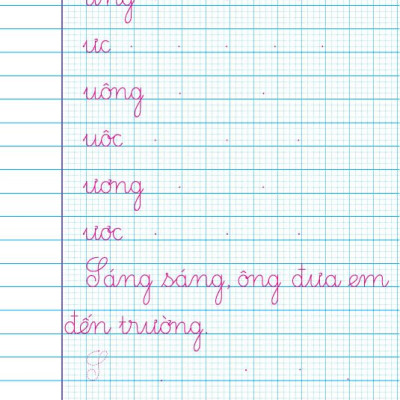 ưng
ưc
uông
uôc
ương
ươc
Sáng sáng, ông đưa em
đến trường.
S